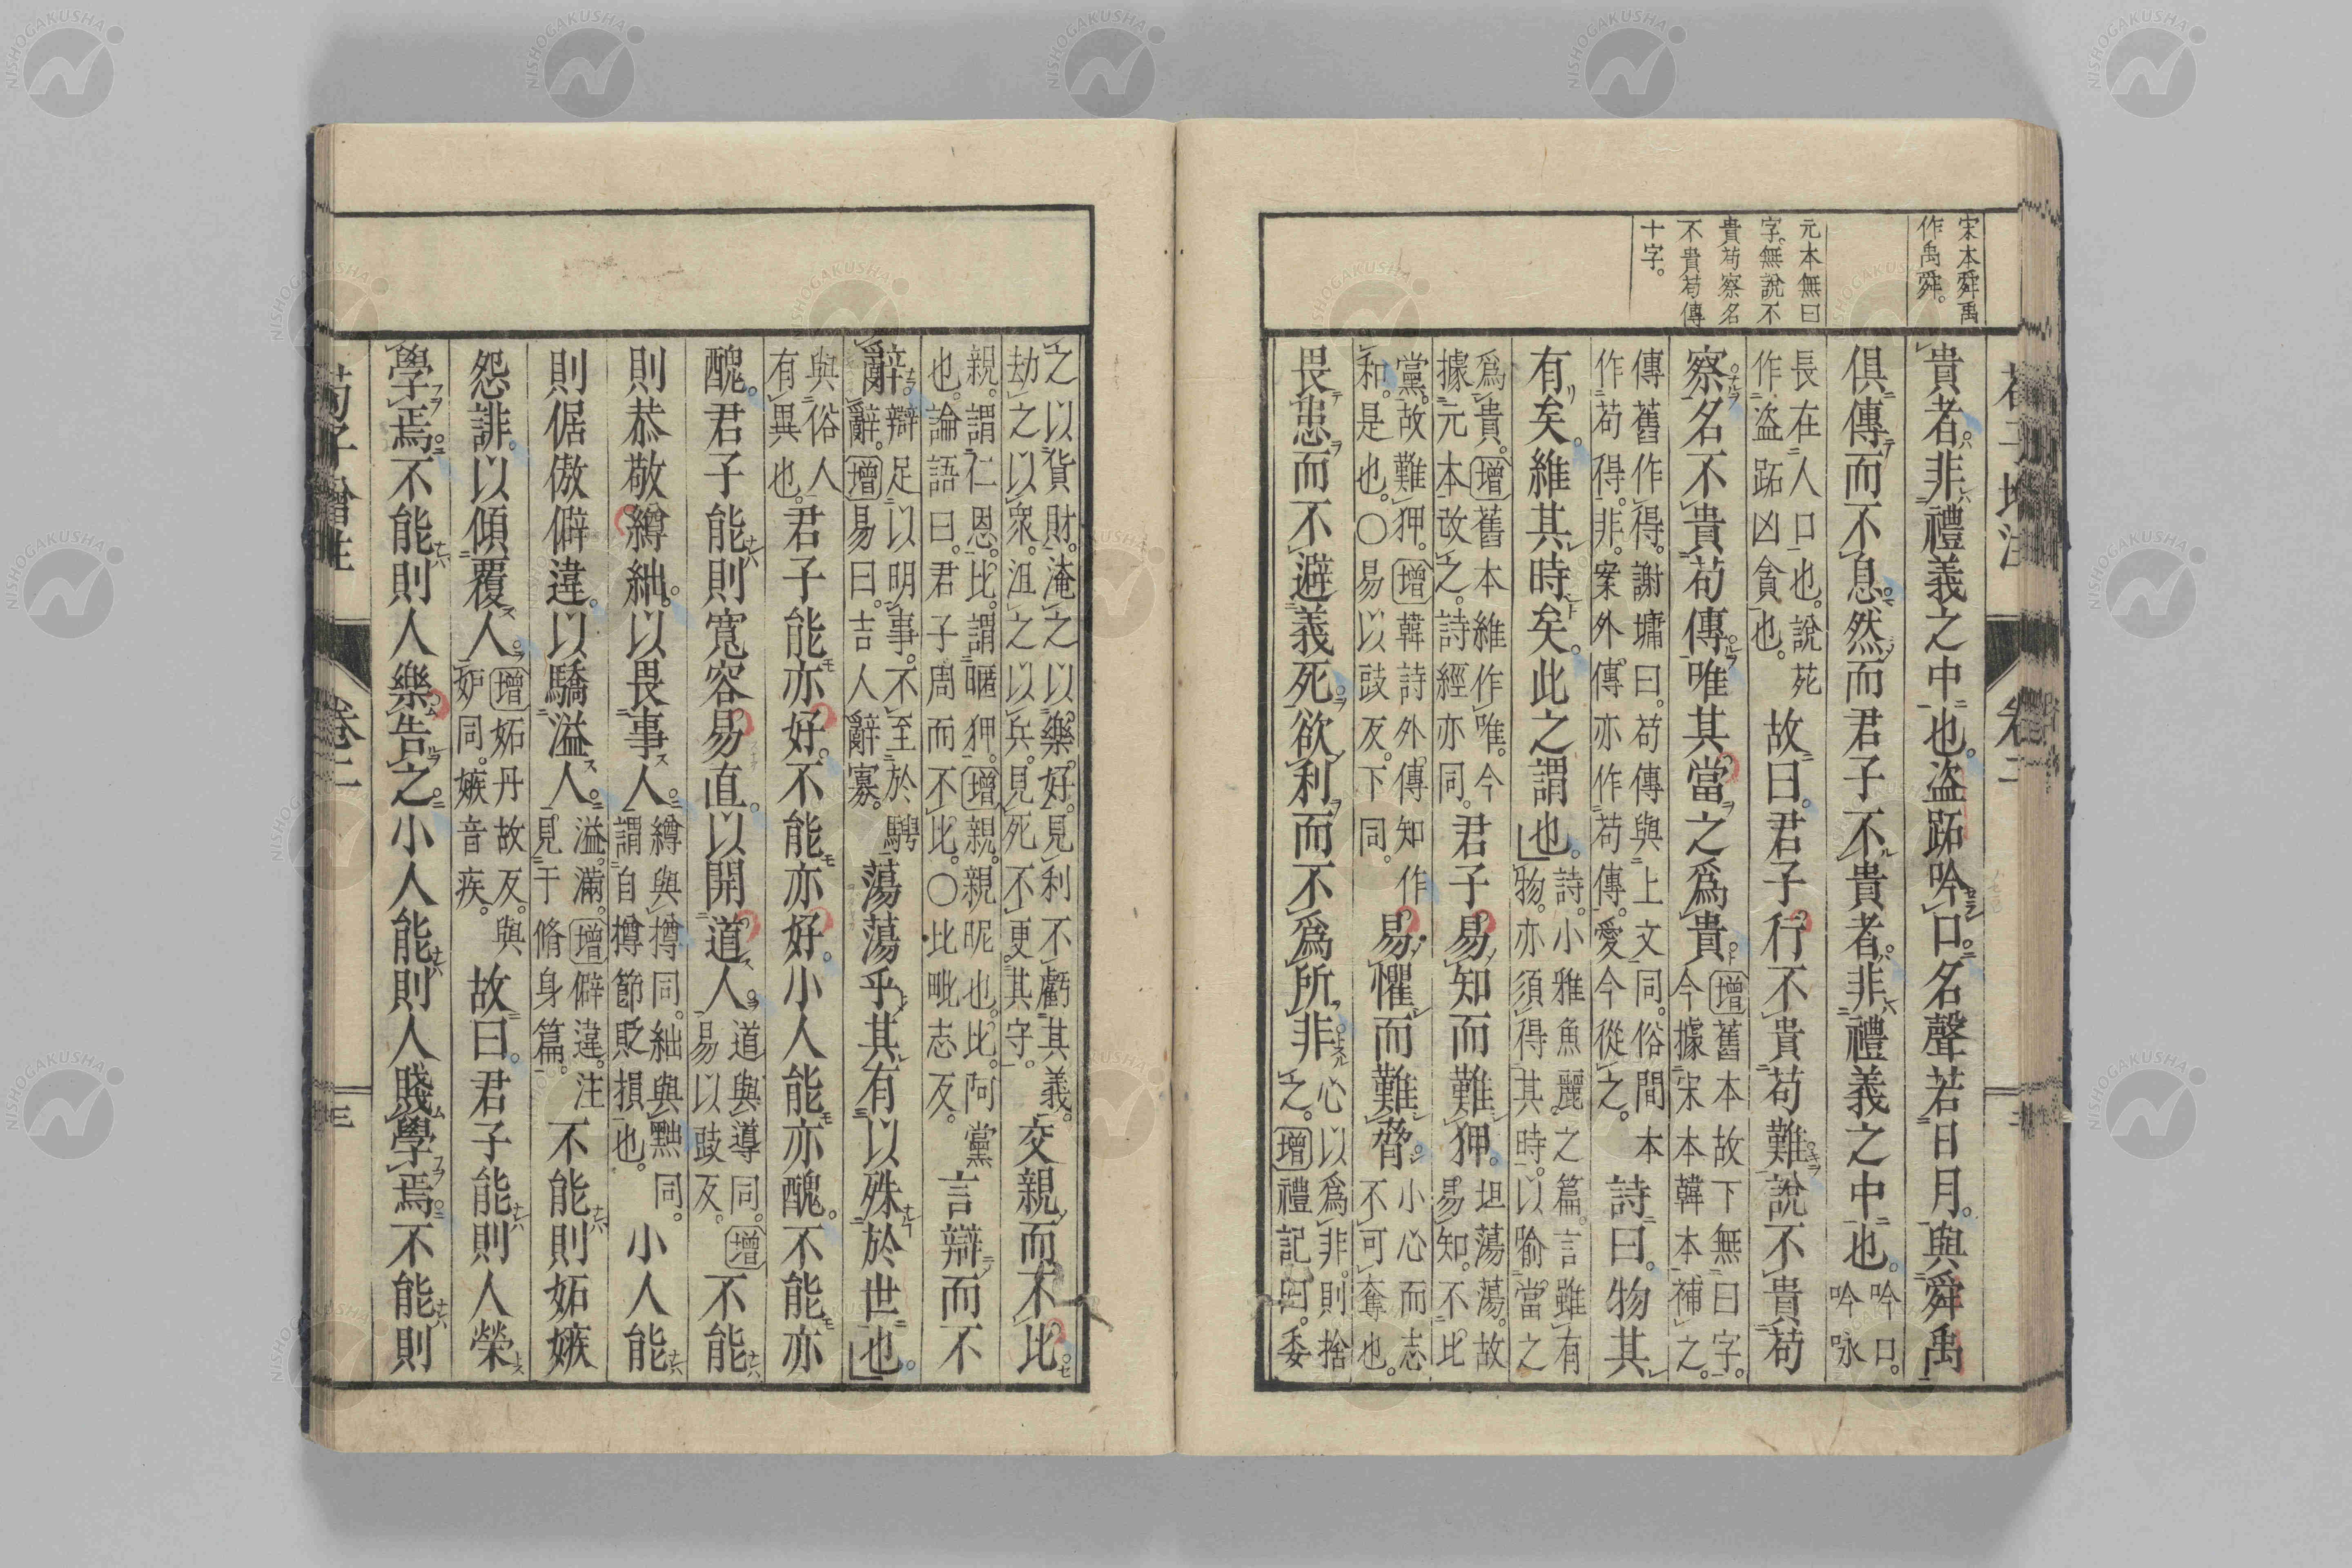 宋本舜禹
作禹舜。
元本無曰
字。無說不
貴苟察名
不貴苟傳
十字。
貴者。非禮義之中也。盜跖吟口。名聲若日月。與舜禹
俱傳而不息。然而君子不貴者。非禮義之中也。吟口。吟咏
長在人口也。說苑作盜跖凶貪也。故曰。君子行不貴苟難。說不貴苟
察。名不貴苟傳。唯其當之爲貴。增舊本故下無曰字。今據宋本韓本補之。
傳舊作得。謝墉曰。苟傳與上文同。俗間本作苟得。非。案外傳亦作苟傳。愛今從之。詩曰。物其
有矣。維其時矣。此之謂也。詩。小雅魚麗之篇。言雖有物。亦須得其時。以喻當之
爲貴。增舊本維作唯。今據元本改之。詩經亦同。君子易知而難狎。坦蕩蕩。故易知。不比
黨。故難狎。增韓詩外傳知作和。是也。○易以豉反。下同。易懼而難脅。小心而志不可奪也。
畏患而不避義死。欲利而不爲所非。心以爲非。則捨之。增禮記曰。委
之以貨財。淹之以樂好。見利不虧其義。劫之以衆。沮之以兵。見死不更其守。交親而不比。
親。謂仁恩。比。謂暱狎。增親。親昵也。比。阿黨也。論語曰。君子周而不比。○比毗志反。言辯而不
辭。辯足以明事。不至於騁辭。增易曰。吉人辭寡。蕩蕩乎其有以殊於世也。
與俗人有異也。君子能亦好。不能亦好。小人能亦醜。不能亦
醜。君子能則寬容易直。以開道人。道與導同。增易以豉反。不能
則恭敬縛絀。以畏事人。縛與撙同。絀與黜同。謂自撙節貶損也。小人能
則倨傲僻違。以驕溢人。溢。滿。增僻違。注見于脩身篇。不能則妬嫉
怨誹。以傾覆人。增妬丹故反。與妒同。嫉音疾。故曰。君子能則人榮
學焉。不能則人樂告之。小人能則人賤學焉。不能則
荀子增注
卷二
三